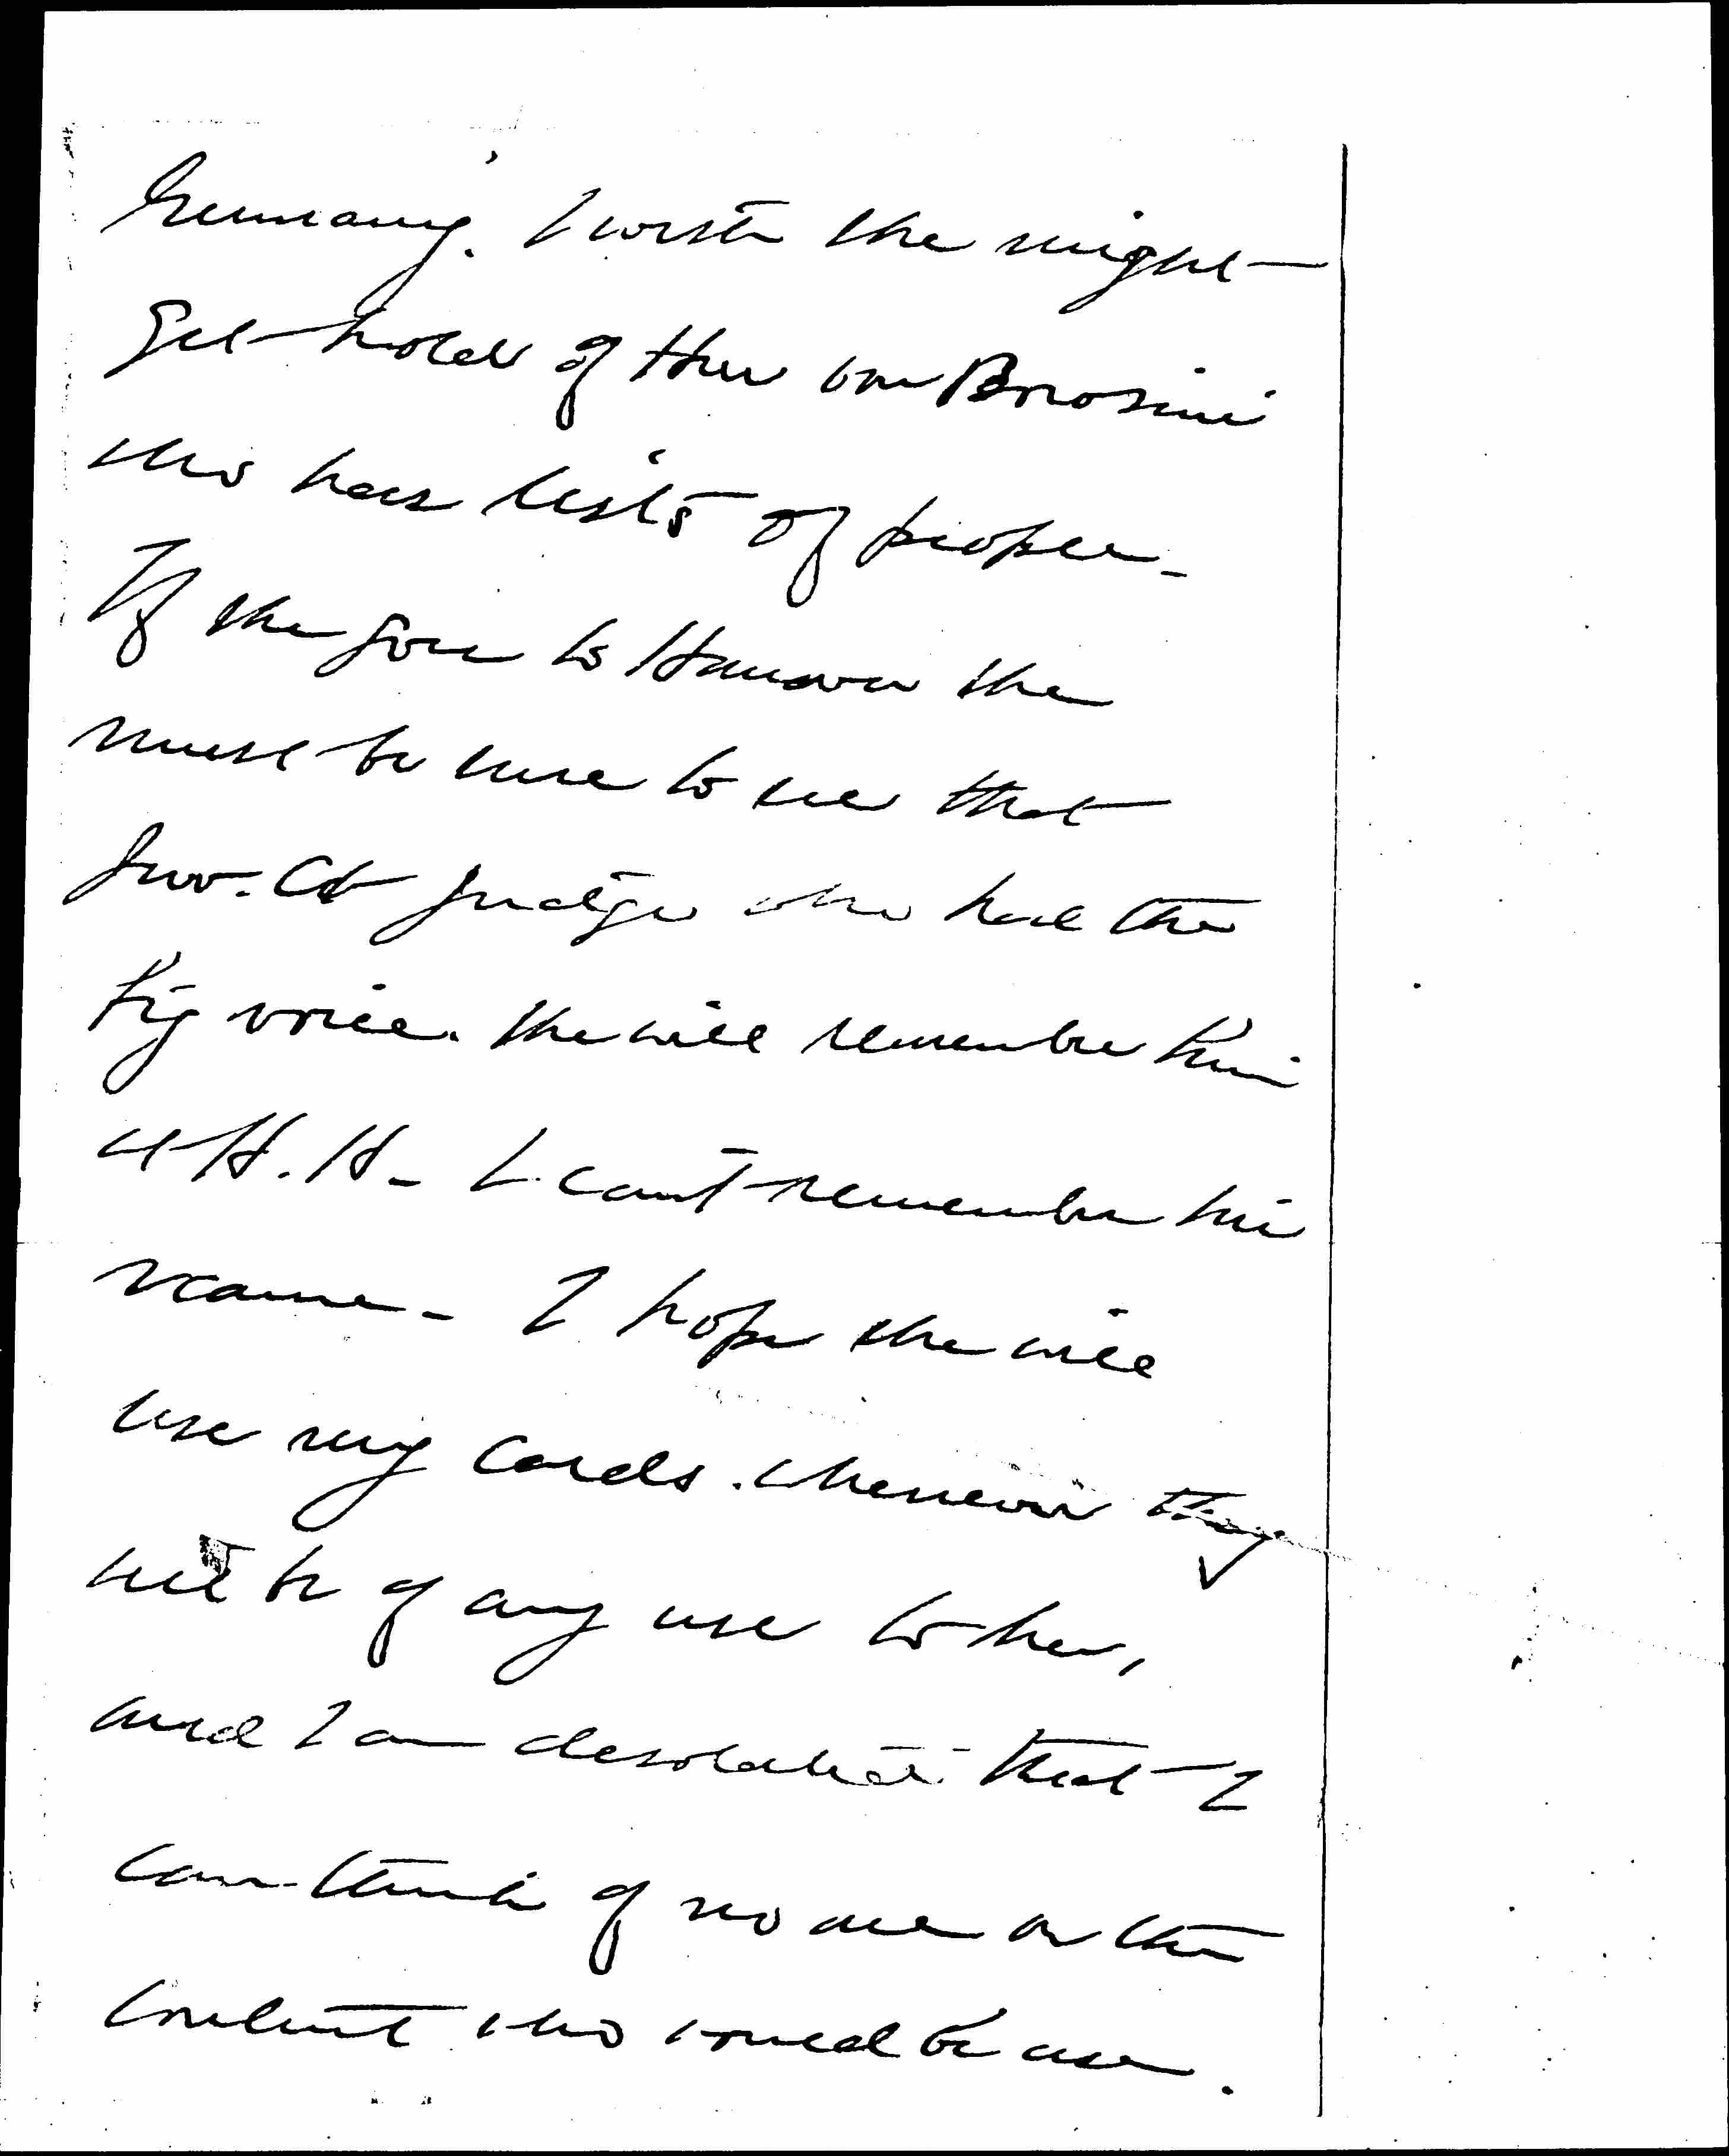 Germany. I wish she might
get hold of Herr von Borosini
who has lists of people.
If she goes to Hanover she
must be sure to see that
Juv. Ct Judge who had the
big voice. She will remember him
at H. H. I can't remember his
name - I hope she will
use my cards whenever they
will be of any use to her,
and I am desolated that I
can think of no one on the
continent who would be use.